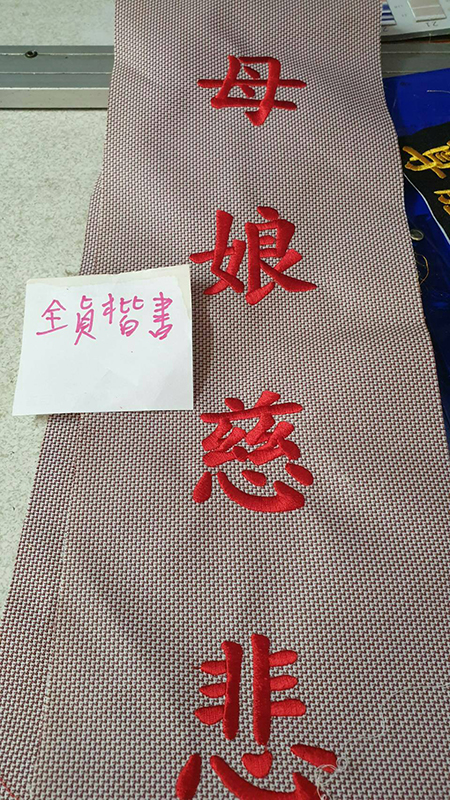 母娘慈悲
全真楷書